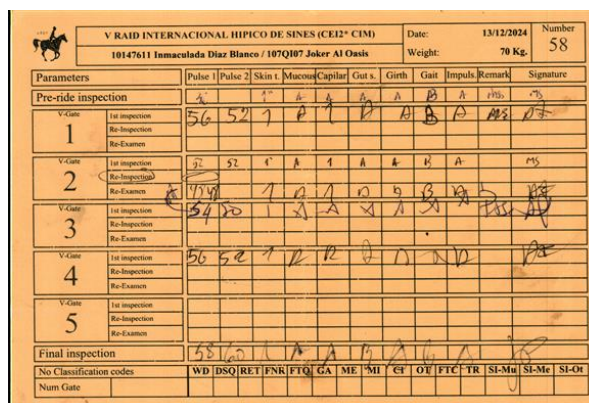 V RAID INTERNACIONAL HIPICO DE SINES (CEI2* CIM) Date: 13/12/2024 Number
10147611 Inmaculada Diaz Blanco / 107QI07 Joker Al Oasis Weight: 70 Kg. 58
Parameters Pulse 1 Pulse 2 Skin t. Mucous Capilar Gut s. Girth Gait Impuls. Remark Signature
Pre-ride inspection 1" A A A B A
V-Gate 1 1st inspection 56 52 1 A 1 A A B A MS
Re-Inspection
Re-Examen
V-Gate 2 1st inspection 52 52 1" A 1 A A B A MS
Re-Inspection
Re-Examen 1 1 B
V-Gate 3 1st inspection 54 50 1 A A A A A
Re-Inspection
Re-Examen
V-Gate 4 1st inspection 56 52 1
Re-Inspection
Re-Examen
V-Gate 5 1st inspection
Re-Inspection
Re-Examen
Final inspection 58 60 A A B A A
No Classification codes WD DSQ RET FNR FTQ GA ME MI CI OT FTC TR SI-Mu SI-Me SI-Ot
Num Gate